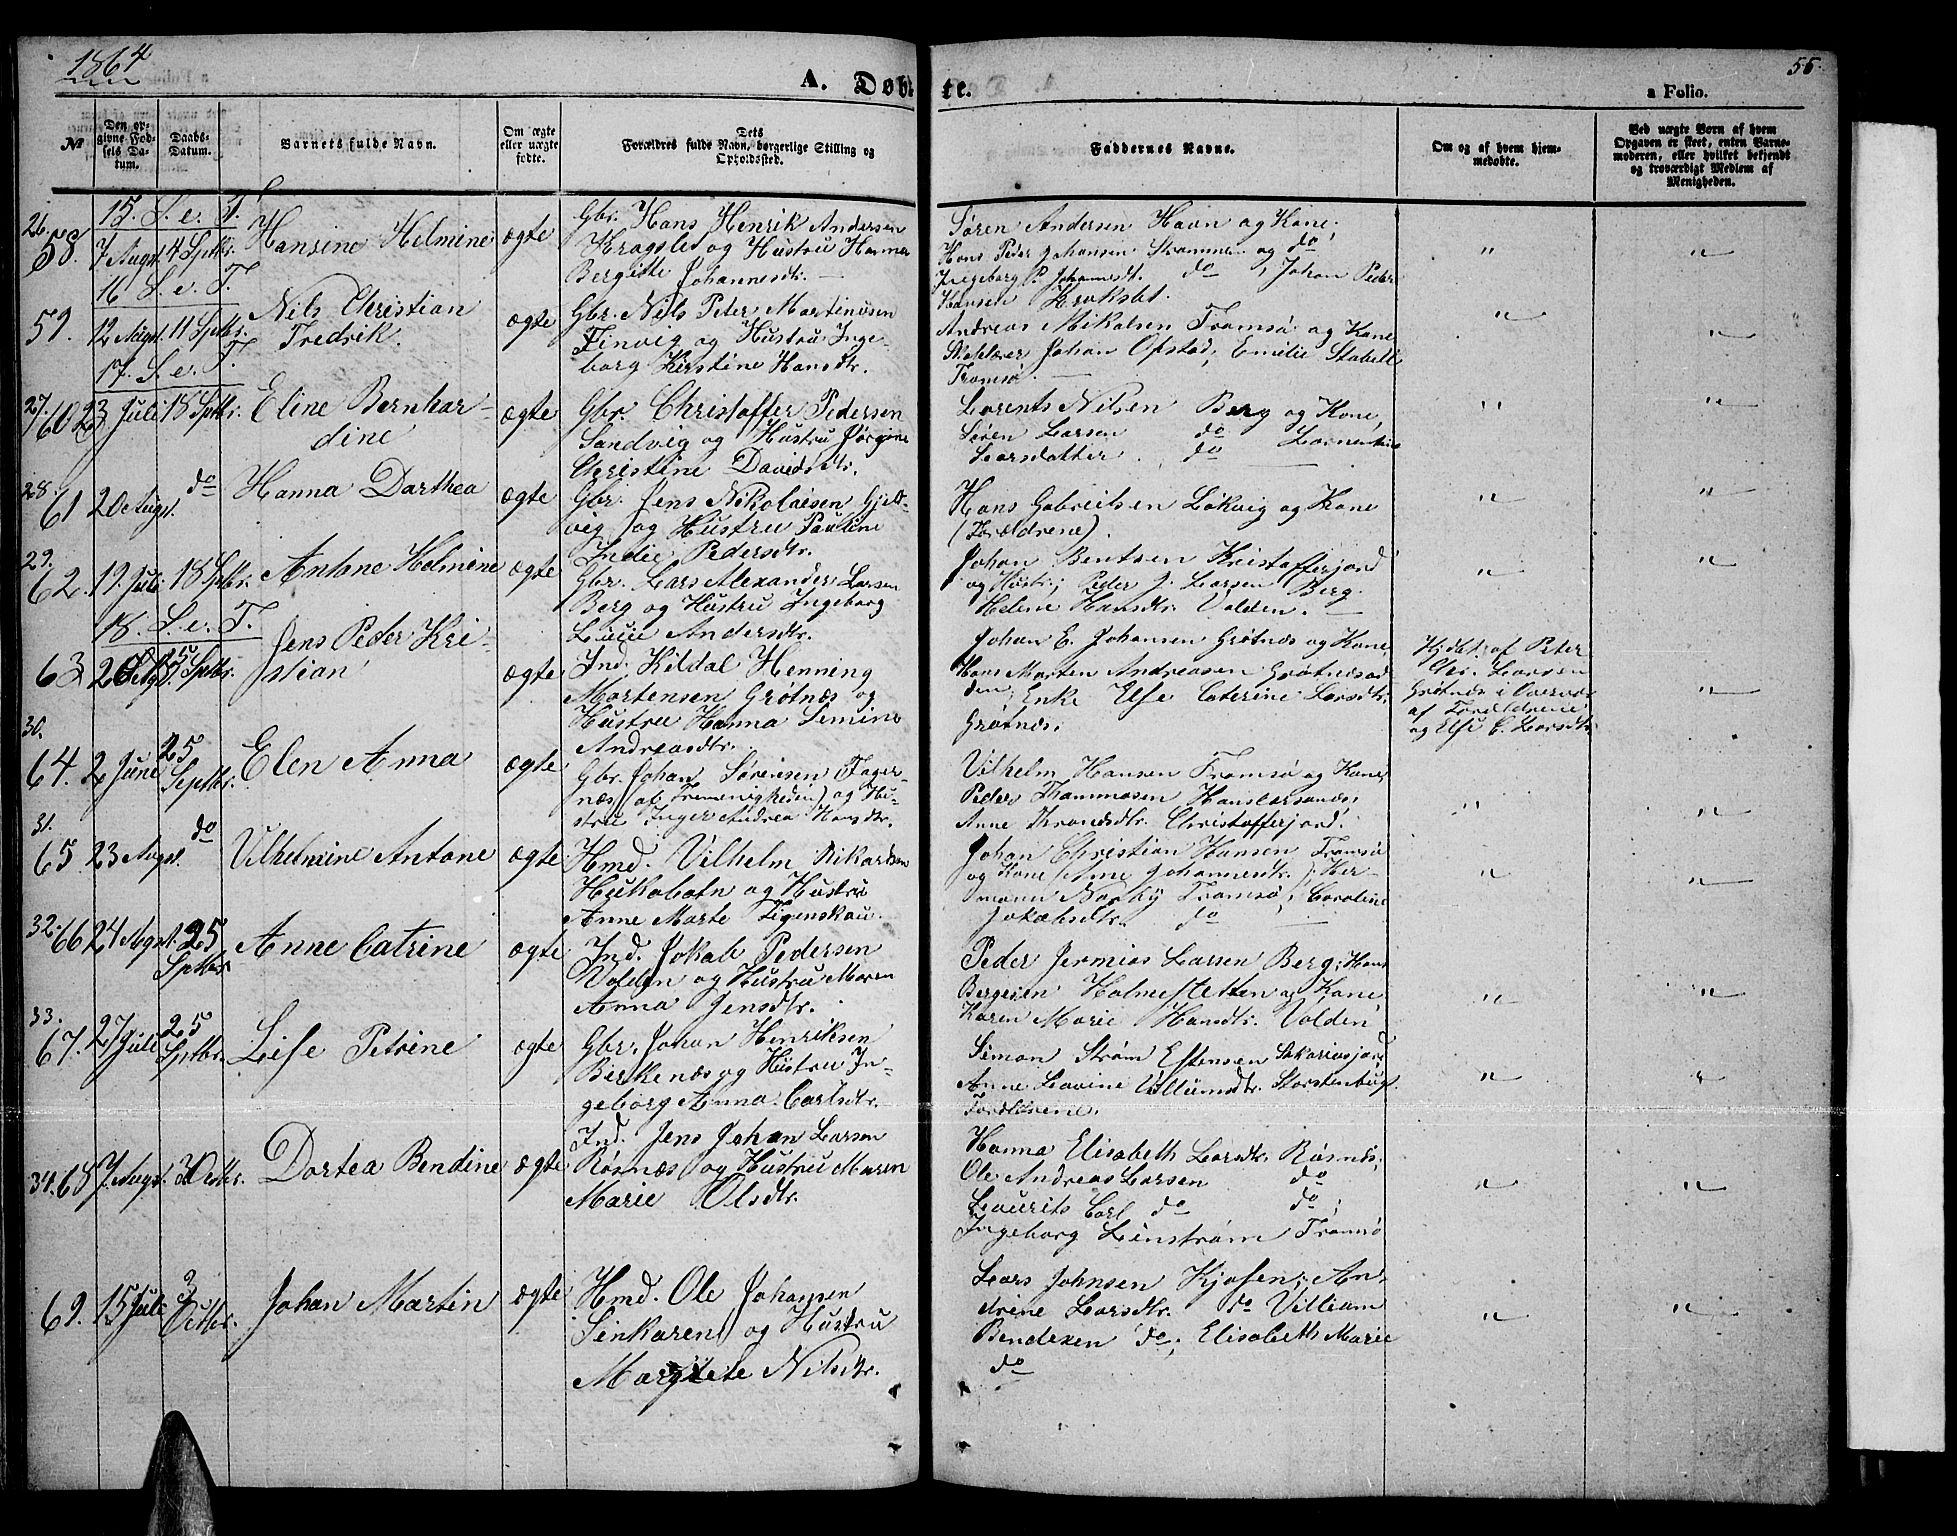 1864
A. Døb-
te.
55.
a Folio.
№
Den or-
givne Fød-
sels Da-
tum.
Daabs-
Datum.
Barnets fulde Navn.
Om ægte
eller uægte
fødte.
Dets
Forældres fulde Navn, borgerlige Stilling og
Opholdssted.
Faddernes Navne.
Om og af hvem hjem-
medøbte.
Ved uægte Børn af hvem
Opgaven er skeet, enten Barne-
moderen, eller hvilket bekjendt
og troværdigt Medlem af
Menigheden.
15. S. e. T.
26.
58. 7 Augst. 4 Septbr. Hansine Helmine ægte
Gbr. Hans Henrik Andersen
Kragslet og Hustru Hanna
Bergitte Johannesdtr.
Søren Andersen Havn og Kone;
Hans Peder Johansen Strømmen og do;
Ingeborg P. Johannesdt. do; Johan Peder
Hansen Krokslet.
16 S. e. T.
59. 12 Augst. 11 Septbr. Nils Christian
Fredrik. ægte
Gbr. Nils Peter Martinusen
Finvig og Hustru Inge-
borg Kirstine Hansdtr.
Andreas Mikalsen Tromsø og Kone
Johan Opstad; Emilie Stabell
Tromsø.
17. S. e. T.
27.
60 23 Juli 18 Septbr. Eline Bernhar-
dine ægte
Gbr. Christoffer Pedersen
Sandvig og Hustru Jørgine
Christine Davidsdtr.
Lorents Nilsen Berg og Kone,
Søren Larsen do
Larsdatter do
28.
61 20 Augst. do Hanna Dorthea ægte
Gbr. Jens Nikolaisen Gjelt-
vig og Hustru Pauline
Indie Pedersdtr.
Hans Gabrielsen Løkvig og Kone
(Forældrene).
29.
62. 19. Juli 18 Septbr. Antone Helmine ægte
Gbr. Lars Alexander Larsen
Berg og Hustru Ingeborg
Lucie Andersdtr.
Johan Bentsen Kristofferjord
og Hustr; Peder J. Larsen Berg.
Helene Hansdtr. Volden.
18. S. e. T.
63 25 Septbr. Jens Peder Kri-
stian ægte
Ind. Kildal Henning
Mortensen Grøtnæs og
Hustru Hanna Semine
Andreasdtr.
Johan E. Johansen Grøtnæs og Kone
Hans Morten Andreasen Grøtnæsod-
den; Enke Else Caterine Larsdtr.
Grøtnæs;
Hjdøbt af Peter
Chr. Larsen
Grøtnæs i Overvær
af Forældrene
og Else C. Larsdtr.
30.
64. 2 June 25
Septbr. Elen Anna ægte
Gbr. Johan Sørensen Fager-
næs (af Fremenigheden) og Hu-
stru Inger Andrea Hansdtr.
Vilhelm Hansen Tromsø og Kone;
Peder Thommasen Hanslarsanæs;
Anne Kronesdtr. Christofferjord.
31.
65. 23 Augst. do Vilhelmine Antone ægte
Hmd. Vilhelm Rikardsen
Hukobotn og Hustru
Anne Marte Figenskau.
Johan Christian Hansen Tromsø
og Kone (Ane Johannesdtr.); Her-
mann Norby Tromsø; Caroline
Jokabsdtr. do
32.
66 24 Augst. 25
Septbr. Anne Catrine ægte
Ind. Jokab Pedersen
Volden og Hustru Maren
Anna Jensdtr.
Peder Jermias Larsen Berg; Hans
Bergesen Holmesletten og Kone
Karen Marie Hansdtr. Volden
33.
67. 27 Juli 25
Septbr. Lise Petrine ægte
Gbr. Johan Henriksen
Birkenæs og Hustru In-
geborg Anna Carlsdtr.
Simon Strøm Estensen Sakariasjord
Anne Lovine Villumsdtr. Storstenbugt
Forældrene.
34. 68 7. Augst. 3 Octbr. Dortea Bendine ægte
Ind. Jens Johan Larsen
Røsnæs og Hustru Maren
Marie Olsdtr.
Hanna Elisabeth Larsdtr. Røsnæs,
Ole Andreas Larsen do
Laurits Carl do do;
Ingeborg Linstrøm Tromsø
69. 15 Juli 3
Octbr. Johan Martin ægte
Hmd. Ole Johansen
Sinkaren og Hustru
Margrete Nilsdtr.
Lars Johnsen Kjosen; An-
drine Larsdtr. do Villiam
Bendixen do; Elisabeth Marie
do